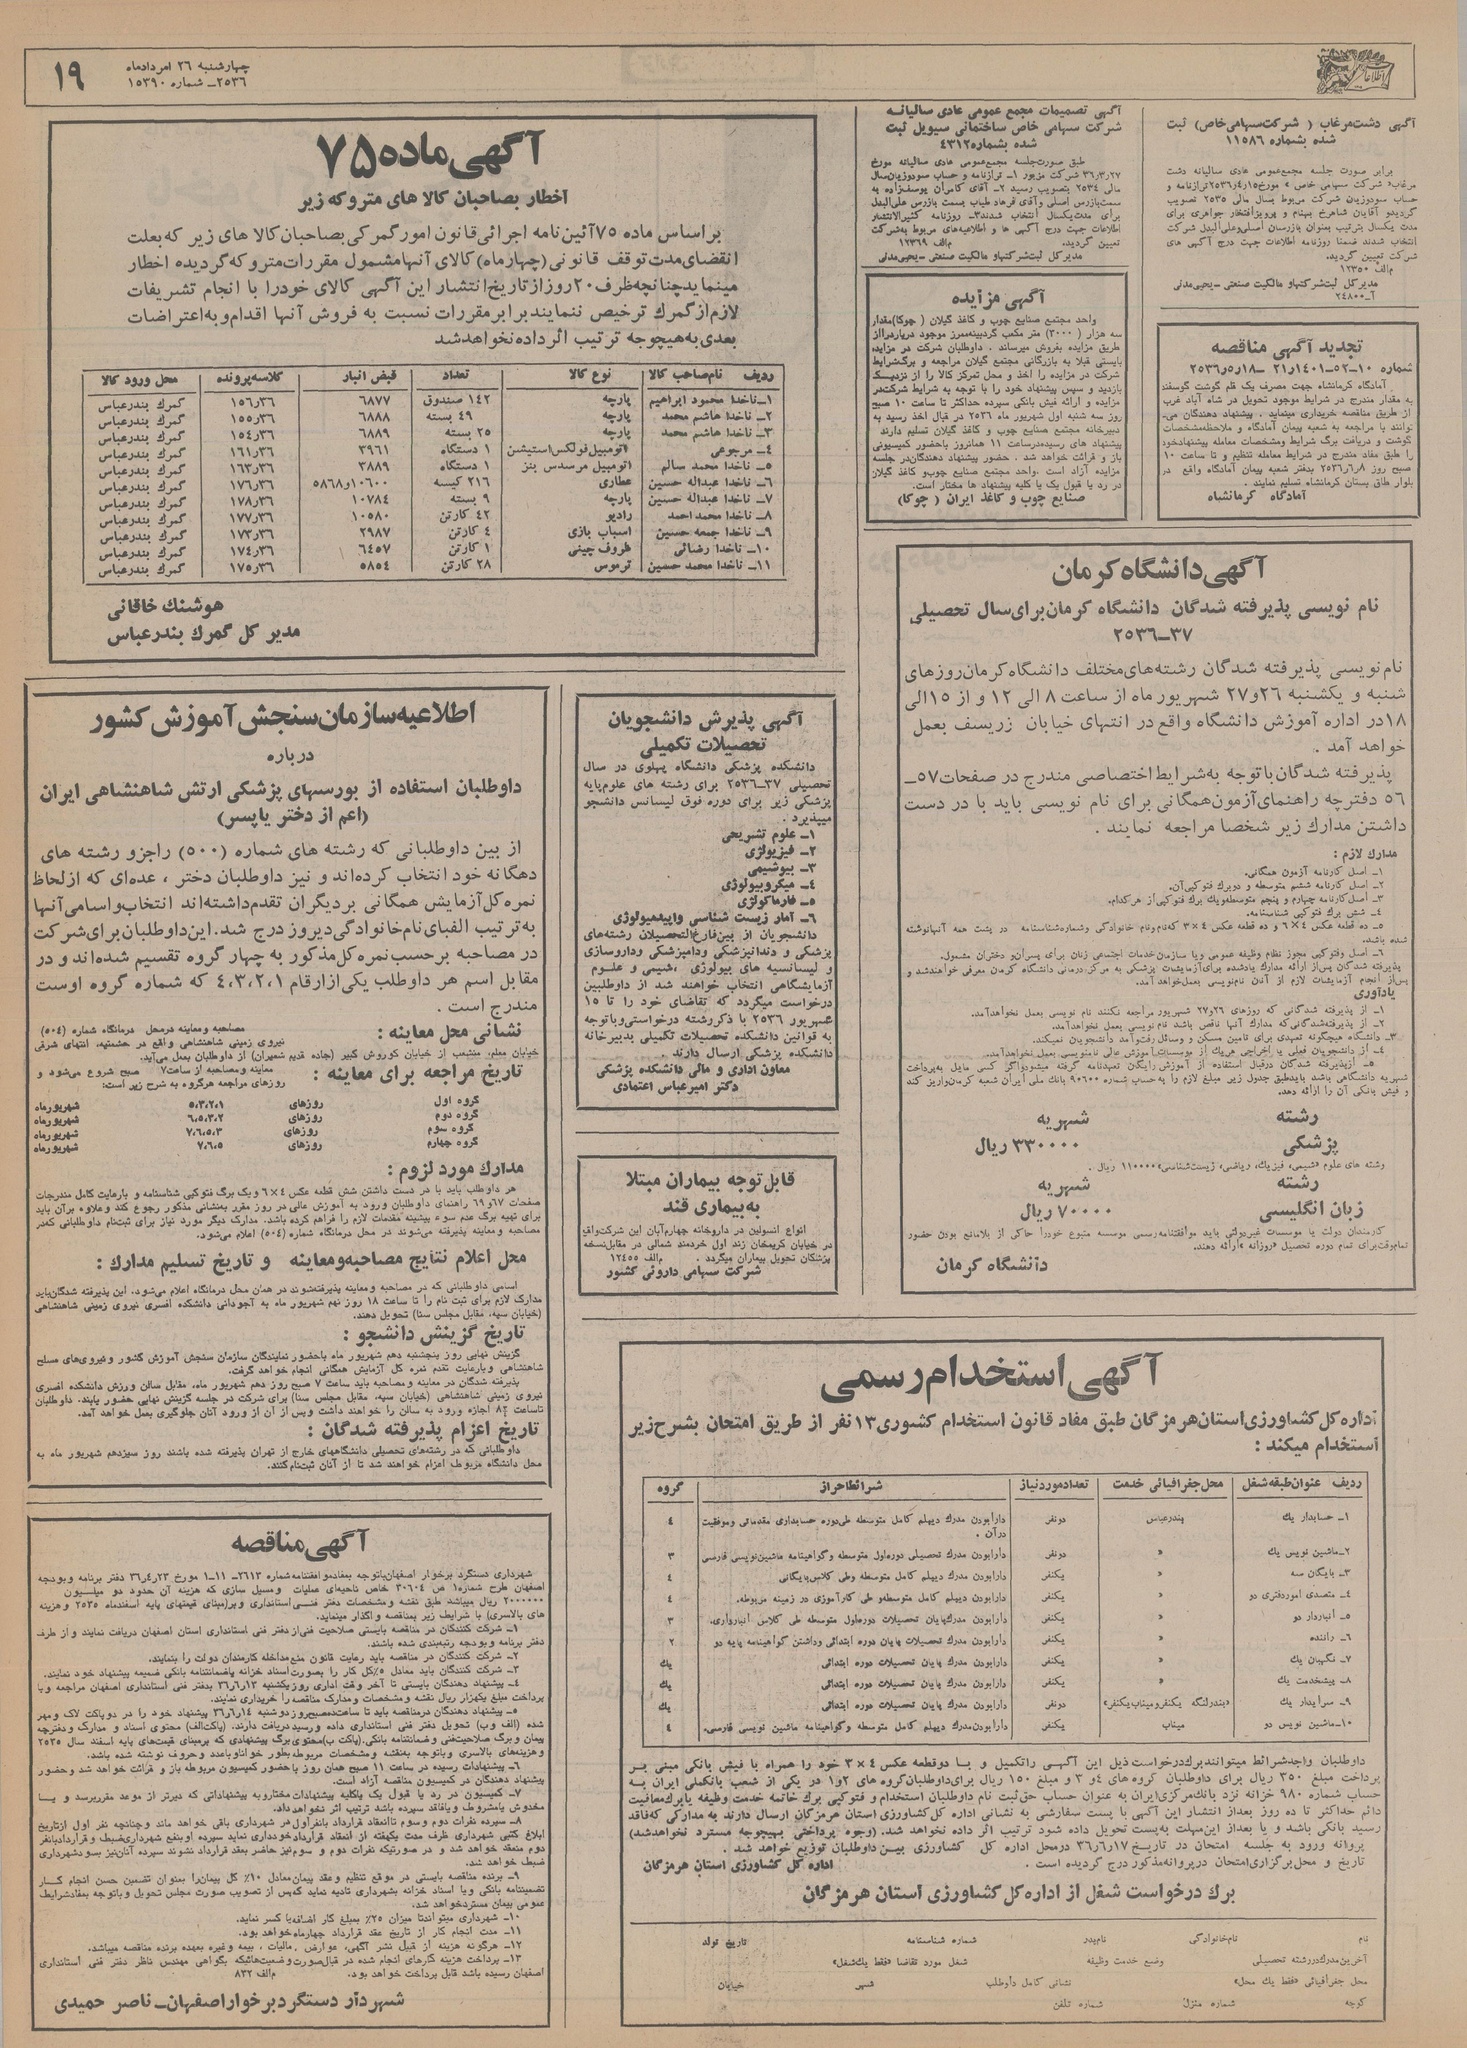 اطلاعات
چهارشنبه ۲۶ امردادماه
۲۵۳۶ـ شماره ۱۵۳۹۰
۱۹
آگهی دشت‌مرغاب ( شرکت‌سهامی‌خاص) ثبت
شده بشماره ۱۱۵۸۶
برابر صورت جلسه مجمع‌عمومی عادی سالیانه دشت
مرغاب« شرکت سهامی خاص » مورخ۱۵ر۴ر۲۵۳۶ترازنامه و
حساب سودوزیان شرکت مربوط بسال مالی ۲۵۳۵ تصویب
گردیدو آقایان شاهرخ بهنام و پرویزافتخار جواهری برای
مدت یکسال بترتیب بعنوان بازرسان اصلی‌وعلی‌البدل شرکت
انتخاب شدند ضمنا روزنامه اطلاعات جهت درج آگهی های
شرکت تعیین گردید.
م‌الف ۱۲۳۵۰
مدیرکل ثبت‌شرکتهاو مالکیت صنعتی ـ یحیی‌مدنی
آـ ۲۴۸۰۰
تجدید آگهی مناقصه
شماره ۱۰ـ۵۲ـ۱۴۰۱ر۲۱ ـ۱۸ر۵ر۲۵۳۶
آمادگاه کرمانشاه جهت مصرف یک قلم گوشت گوسفند
به مقدار مندرج در شرایط موجود تحویل در شاه آباد غرب
از طریق مناقصه خریداری مینماید . پیشنهاد دهندگان می‌ـ
توانند با مراجعه به شعبه پیمان آمادگاه و ملاحظه‌مشخصات
گوشت و دریافت برگ شرایط ومشخصات معامله پیشنهادخود
را طبق مفاد مندرج در شرایط معامله تنظیم و تا ساعت ۱۰
صبح روز ۸ر۶ر۲۵۳۶ بدفتر شعبه پیمان آمادگاه واقع در
بلوار طاق بستان کرمانشاه تسلیم نمایند .
آمادگاه کرمانشاه
آگهی تصمیمات مجمع عمومی عادی سالیانه
شرکت سهامی خاص ساختمانی سیویل ثبت
شده بشماره۴۳۱۲
طبق صورت‌جلسه مجمع‌عمومی عادی سالیانه مورخ
۲۷ر۳ر۳۶ شرکت مزبور ۱ـ ترازنامه و حساب سودوزیان‌سال
مالی ۲۵۳۴ بتصویب رسید ۲ـ آقای کامران یوسف‌زاده به
سمت‌بازرس اصلی وآقای فرهاد طیاب بسمت بازرس علی‌البدل
برای مدت‌یکسال انتخاب شدند۳ـ روزنامه کثیرالانتشار
اطلاعات جهت درج آگهی ها و اطلاعیه‌های مربوط به‌شرکت
تعیین گردید. م‌الف ۱۲۳۶۹
مدیرکل ثبت‌شرکتهاو مالکیت صنعتی ـ یحیی‌مدنی
آگهی مزایده
واحد مجتمع صنایع چوب و کاغذ گیلان ( چوکا)مقدار
سه هزار (۳۰۰۰) متر مکعب گردبینه‌ممرز موجود دربازدرااز
طریق مزایده بفروش میرساند . داوطلبان شرکت در مزایده
بایستی قبلا به بازرگانی مجتمع گیلان مراجعه و برگ‌شرایط
شرکت در مزایده را اخذ و محل تمرکز کالا را از نزدیک
بازدید و سپس پیشنهاد خود را با توجه به شرایط شرکت‌در
مزایده و ارائه فیش بانکی سپرده حداکثر تا ساعت ۱۰ صبح
روز سه شنبه اول شهریور ماه ۲۵۳۶ در قبال اخذ رسید به
دبیرخانه مجتمع صنایع چوب و کاغذ گیلان تسلیم دارند .
پیشنهاد های رسیده‌درساعت ۱۱ همانروز باحضور کمیسیونی
باز و قرائت خواهد شد . حضور پیشنهاد دهندگان‌در جلسه
مزایده آزاد است .واحد مجتمع صنایع چوب‌و کاغذ گیلان
در رد یا قبول یک یا کلیه پیشنهاد ها مختار است.
صنایع چوب و کاغذ ایران ( چوکا)
آگهی ماده ۷۵
اخطار بصاحبان کالا های متروکه زیر
براساس ماده ۷۵آئین‌نامه اجرائی قانون امورگمرکی بصاحبان کالا های زیر که بعلت
انقضای مدت توقف قانونی (چهارماه) کالای آنها مشمول مقررات متروکه گردیده اخطار
مینماید چنانچه ظرف ۲۰ روز از تاریخ انتشار این آگهی کالای خود را با انجام تشریفات
لازم از گمرک ترخیص ننمایند برابر مقررات نسبت به فروش آنها اقدام و به اعتراضات
بعدی به هیچوجه ترتیب اثر داده نخواهد شد
ردیف نام‌صاحب کالا نوع کالا تعداد قبض انبار کلاسه‌پرونده محل ورود کالا
۱ـ ناخدا محمود ابراهیم پارچه ۱۴۲ صندوق ۶۸۷۷ ۳۶ر۱۵۶ گمرک بندرعباس
۲ـ ناخدا هاشم محمد پارچه ۴۹ بسته ۶۸۸۸ ۳۶ر۱۵۵ گمرک بندرعباس
۳ـ ناخدا هاشم محمد پارچه ۲۵ بسته ۶۸۸۹ ۳۶ر۱۵۴ گمرک بندرعباس
۴ـ مرجوعی اتومبیل‌فولکس‌استیشن ۱ دستگاه ۳۹۶۱ ۳۶ر۱۶۱ گمرک بندرعباس
۵ـ ناخدا محمد سالم اتومبیل مرسدس بنز ۱ دستگاه ۳۸۸۹ ۳۶ر۱۶۳ گمرک بندرعباس
۶ـ ناخدا عبداله حسین عطاری ۲۱۶ کیسه ۱۰۶۰۰و۵۸۶۸ ۳۶ر۱۷۶ گمرک بندرعباس
۷ـ ناخدا عبداله حسین پارچه ۹ بسته ۱۰۷۸۴ ۳۶ر۱۷۸ گمرک بندرعباس
۸ـ ناخدا محمد احمد رادیو ۴۲ کارتن ۱۰۵۸۰ ۳۶ر۱۷۷ گمرک بندرعباس
۹ـ ناخدا جمعه حسین اسباب بازی ۴ کارتن ۲۹۸۷ ۳۶ر۱۷۳ گمرک بندرعباس
۱۰ـ ناخدا رضائی ظروف چینی ۱ کارتن ۶۴۵۷ ۳۶ر۱۷۴ گمرک بندرعباس
۱۱ـ ناخدا محمد حسین ترموس ۲۸ کارتن ۵۸۵۴ ۳۶ر۱۷۵ گمرک بندرعباس
هوشنگ خاقانی
مدیر کل گمرک بندرعباس
آگهی دانشگاه کرمان
نام نویسی پذیرفته شدگان دانشگاه کرمان برای سال تحصیلی
۳۷ـ۲۵۳۶
نام‌نویسی پذیرفته شدگان رشته‌های مختلف دانشگاه کرمان روزهای
شنبه و یکشنبه ۲۶و۲۷ شهریور ماه از ساعت ۸ الی ۱۲ و از ۱۵ الی
۱۸ در اداره آموزش دانشگاه واقع در انتهای خیابان زریسف بعمل
خواهد آمد .
پذیرفته شدگان با توجه به شرایط اختصاصی مندرج در صفحات ۵۷ـ
۵۶ دفترچه راهنمای آزمون همگانی برای نام نویسی باید با در دست
داشتن مدارک زیر شخصا مراجعه نمایند .
مدارک لازم :
۱ـ اصل کارنامه آزمون همگانی.
۲ـ اصل کارنامه ششم متوسطه و دوبرگ فتوکپی‌آن.
۳ـ اصل‌کارنامه چهارم و پنجم متوسطه‌ویک برگ فتوکپی‌از هرکدام.
۴ـ شش برگ فتوکپی شناسنامه.
۵ـ ده قطعه عکس ۴×۶ و ده قطعه عکس ۴×۳ که‌نام‌ونام خانوادگی وشماره‌شناسنامه در پشت همه آنهانوشته
شده باشد.
۶ـ اصل وفتوکپی مجوز نظام وظیفه عمومی ویا سازمان‌خدمات اجتماعی زنان برای پسران‌و دختران مشمول.
پذیرفته شدگان پس‌از ارائه مدارک یادشده برای‌آزمایشات پزشکی به مرکز درمانی دانشگاه کرمان معرفی خواهندشد و
پس‌از انجام آزمایشات لازم از آنان نام‌نویسی بعمل‌خواهدآمد.
یادآوری
۱ـ از پذیرفته شدگانی که روزهای ۲۶و۲۷ شهریور مراجعه نکنند نام نویسی بعمل نخواهدآمد.
۲ـ از پذیرفته‌شدگانی‌که مدارک آنها ناقص باشد نام نویسی بعمل نخواهدآمد.
۳ـ دانشگاه هیچگونه تعهدی برای تامین مسکن و وسائل رفت‌وآمد دانشجویان نمیکند.
۴ـ از دانشجویان فعلی یا اخراجی هریک از موسسات‌آموزش عالی نام‌نویسی بعمل نخواهدآمد.
۵ـ ازپذیرفته شدگان درقبال استفاده از آموزش رایگان تعهدنامه گرفته میشودواگر کسی مایل به‌پرداخت
شهریه دانشگاهی باشد بایدطبق جدول زیر مبلغ لازم را به‌حساب شماره ۹۰۶۰۰ بانک ملی ایران شعبه کرمان‌واریز کند
و فیش بانکی آن را ارائه دهد.
رشته شهریه
پزشکی ۳۳۰۰۰۰ ریال
رشته های علوم «شیمی، فیزیک، ریاضی، زیست‌شناسی» ۱۱۰۰۰۰ ریال .
رشته شهریه
زبان انگلیسی ۷۰۰۰۰ ریال
کارمندان دولت یا موسسات غیردولتی باید موافقتنامه‌رسمی موسسه متبوع خودرا حاکی از بلامانع بودن حضور
تمام‌وقت‌برای تمام دوره تحصیل «روزانه »ارائه دهند.
دانشگاه کرمان
آگهی پذیرش دانشجویان
تحصیلات تکمیلی
دانشکده پزشکی دانشگاه پهلوی در سال
تحصیلی ۳۷ـ۲۵۳۶ برای رشته های علوم‌پایه
پزشکی زیر برای دوره فوق لیسانس دانشجو
میپذیرد .
۱ـ علوم تشریحی
۲ـ فیزیولژی
۳ـ بیوشیمی
۴ـ میکروبیولوژی
۵ـ فارماکولژی
۶ـ آمار زیست شناسی واپیدمیولوژی
دانشجویان از بین‌فارغ‌التحصیلان رشته‌های
پزشکی و دندانپزشکی ودامپزشکی وداروسازی
و لیسانسیه های بیولوژی ،شیمی و علوم
آزمایشگاهی انتخاب خواهند شد از داوطلبین
درخواست میگردد که تقاضای خود را تا ۱۵
شهریور ۲۵۳۶ با ذکررشته درخواستی‌وباتوجه
به قوانین دانشکده تحصیلات تکمیلی بدبیرخانه
دانشکده پزشکی ارسال دارند .
معاون اداری و مالی دانشکده پزشکی
دکتر امیرعباس اعتمادی
قابل توجه بیماران مبتلا
به‌بیماری قند
انواع انسولین در داروخانه چهارم‌آبان این شرکت‌واقع
در خیابان کریمخان زند اول خردمند شمالی در مقابل‌نسخه
پزشکان تحویل بیماران میگردد . م‌الف ۱۲۴۵۵
شرکت سهامی داروئی کشور
اطلاعیه سازمان سنجش آموزش کشور
درباره
داوطلبان استفاده از بورسهای پزشکی ارتش شاهنشاهی ایران
(اعم از دختر یا پسر)
از بین داوطلبانی که رشته های شماره (۵۰۰) راجزو رشته های
دهگانه خود انتخاب کرده‌اند و نیز داوطلبان دختر ، عده‌ای که ازلحاظ
نمره کل آزمایش همگانی بردیگران تقدم داشته‌اند انتخاب و اسامی آنها
به ترتیب الفبای نام خانوادگی دیروز درج شد. این داوطلبان برای شرکت
در مصاحبه برحسب نمره کل مذکور به چهار گروه تقسیم شده‌اند و در
مقابل اسم هر داوطلب یکی از ارقام ۴،۳،۲،۱ که شماره گروه اوست
مندرج است .
نشانی محل معاینه : مصاحبه و معاینه درمحل درمانگاه شماره (۵۰۴)
نیروی زمینی شاهنشاهی واقع در حشمتیه، انتهای شرقی
خیابان معلم، منشعب از خیابان کوروش کبیر (جاده قدیم شمیران) از داوطلبان بعمل می‌آید.
تاریخ مراجعه برای معاینه : معاینه ومصاحبه از ساعت۷ صبح شروع می‌شود و
روزهای مراجعه هرگروه به شرح زیر است:
گروه اول روزهای ۵،۳،۲،۱ شهریورماه
گروه دوم روزهای ۶،۵،۳،۲ شهریورماه
گروه سوم روزهای ۷،۶،۵،۳ شهریورماه
گروه چهارم روزهای ۷،۶،۵ شهریورماه
مدارک مورد لزوم :
هر داوطلب باید با در دست داشتن شش قطعه عکس ۴×۶ و یک برگ فتوکپی شناسنامه و بارعایت کامل مندرجات
صفحات ۶۷و ۶۹ راهنمای داوطلبان ورود به آموزش عالی در روز مقرر به‌نشانی مذکور رجوع کند و علاوه برآن باید
برای تهیه برگ عدم سوء پیشینه مقدمات لازم را فراهم کرده باشد. مدارک دیگر مورد نیاز برای ثبت‌نام داوطلبانی که‌در
مصاحبه و معاینه پذیرفته می‌شوند در محل درمانگاه شماره (۵۰۴) اعلام می‌شود.
محل اعلام نتایج مصاحبه‌ومعاینه و تاریخ تسلیم مدارک :
اسامی داوطلبانی که در مصاحبه و معاینه پذیرفته‌شوند در همان محل درمانگاه اعلام می‌شود، این پذیرفته شدگان‌باید
مدارک لازم برای ثبت نام را تا ساعت ۱۸ روز نهم شهریور ماه به آجودانی دانشکده افسری نیروی زمینی شاهنشاهی
(خیابان سپه، مقابل مجلس سنا) تحویل دهند.
تاریخ گزینش دانشجو :
گزینش نهایی روز پنجشنبه دهم شهریور ماه باحضور نمایندگان سازمان سنجش آموزش کشور ونیروی‌های مسلح
شاهنشاهی وبارعایت تقدم نمره کل آزمایش همگانی انجام خواهد گرفت.
پذیرفته شدگان در معاینه و مصاحبه باید ساعت ۷ صبح روز دهم شهریور ماه، مقابل سالن ورزش دانشکده افسری
نیروی زمینی شاهنشاهی (خیابان سپه، مقابل مجلس سنا) برای شرکت در جلسه گزینش نهایی حضور یابند. داوطلبان
تاساعت ۸ اجازه ورود به سالن را خواهند داشت وپس از آن از ورود آنان جلوگیری بعمل خواهد آمد.
تاریخ اعزام پذیرفته شدگان :
داوطلبانی که در رشته‌های تحصیلی دانشگاههای خارج از تهران پذیرفته شده باشند روز سیزدهم شهریور ماه به
محل دانشگاه مربوط اعزام خواهند شد تا از آنان ثبت‌نام‌کنند.
آگهی استخدام رسمی
اداره کل کشاورزی استان هرمزگان طبق مفاد قانون استخدام کشوری ۱۳ نفر از طریق امتحان بشرح زیر
استخدام میکند :
ردیف عنوان‌طبقه‌شغل محل‌جغرافیائی خدمت تعدادموردنیاز شرائط‌احراز گروه
۱ـ حسابدار یک بندرعباس دونفر دارابودن مدرک دیپلم کامل متوسطه طی‌دوره حسابداری مقدماتی وموفقیت
درآن . ۴
۲ـ ماشین نویس یک « دونفر دارابودن مدرک تحصیلی دوره‌اول متوسطه وگواهینامه ماشین‌نویسی فارسی ۳
۳ـ بایگان سه « یکنفر دارابودن مدرک دیپلم کامل متوسطه وطی کلاس‌بایگانی ۴
۴ـ متصدی اموردفتری دو « یکنفر دارابودن دیپلم کامل متوسطه‌و طی کارآموزی در زمینه مربوطه. ۴
۵ـ انباردار دو « یکنفر دارابودن مدرک‌پایان تحصیلات دوره‌اول متوسطه طی کلاس انبارداری. ۳
۶ـ راننده « یکنفر دارابودن مدرک پایان تحصیلات دوره ابتدائی وداشتن گواهینامه پایه دو ۲
۷ـ نگهبان یک « یکنفر دارابودن مدرک پایان تحصیلات دوره ابتدائی یک
۸ـ پیشخدمت یک « یکنفر دارابودن مدرک پایان تحصیلات دوره ابتدائی یک
۹ـ سرایدار یک «بندرلنگه یکنفرومیناب‌یکنفر» دونفر دارابودن مدرک پایان تحصیلات دوره ابتدائی یک
۱۰ـ ماشین نویس دو میناب یکنفر دارابودن‌مدرک دیپلم کامل متوسطه وگواهینامه ماشین نویسی فارسی. ۴
داوطلبان واجدشرائط میتوانندبرگ‌درخواست ذیل این آگهی راتکمیل و با دوقطعه عکس ۴×۳ خود را همراه با فیش بانکی مبنی بر
پرداخت مبلغ ۳۵۰ ریال برای داوطلبان گروه های ۴و ۳ و مبلغ ۱۵۰ ریال برای‌داوطلبان‌گروه های ۲و۱ در یکی از شعب بانک‌ملی ایران به
حساب شماره ۹۸۰ خزانه نزد بانک‌مرکزی‌ایران به عنوان حساب حق‌ثبت نام داوطلبان استخدام و فتوکپی برگ خاتمه خدمت وظیفه یابرگ‌معافیت
دائم حداکثر تا ده روز بعداز انتشار این آگهی با پست سفارشی به نشانی اداره کل‌کشاورزی استان هرمزگان ارسال دارند به مدارکی که‌فاقد
رسید بانکی باشد و یا بعداز این‌مهلت به‌پست تحویل داده شود ترتیب اثر داده نخواهد شد. (وجوه پرداختی بهیچوجه مسترد نخواهدشد)
پروانه ورود به جلسه امتحان در تاریخ ۱۷ر۶ر۳۶ درمحل اداره کل کشاورزی بین داوطلبان توزیع خواهد شد .
تاریخ و محل‌برگزاری‌امتحان درپروانه‌مذکور درج گردیده است .
اداره کل کشاورزی استان هرمزگان
برگ درخواست شغل از اداره کل کشاورزی استان هرمزگان
نام نام‌خانوادگی نام‌پدر شماره شناسنامه تاریخ تولد
آخرین‌مدرک‌دررشته تحصیلی وضع خدمت وظیفه شغل مورد تقاضا «فقط یک‌شغل»
محل جغرافیائی «فقط یک محل» نشانی کامل داوطلب شهر خیابان
کوچه شماره منزل شماره تلفن
آگهی مناقصه
شهرداری دستگرد برخوار اصفهان‌باتوجه بمفادموافقتنامه‌شماره ۲۶۱۳ـ ۱۱ـ ۱ مورخ ۲۳ر۴ر۳۶ دفتر برنامه و بودجه
اصفهان طرح شماره۱ ص ۳۰۶۰۴ خاص ناحیه‌ای عملیات ومسیل سازی که هزینه آن حدود دو میلیون
۲۰۰۰۰۰۰ ریال میباشد طبق نقشه و مشخصات دفتر فنی استانداری و بر(مبنای قیمتهای پایه اسفندماه ۲۵۳۵ و هزینه
های بالاسری) با شرایط زیر بمناقصه و اگذار مینماید.
۱ـ شرکت کنندگان در مناقصه بایستی صلاحیت فنی‌از دفتر فنی استانداری استان اصفهان دریافت نمایند و از طرف
دفتر برنامه و بودجه رتبه‌بندی شده باشند.
۲ـ شرکت کنندگان در مناقصه باید رعایت قانون منع‌مداخله کارمندان دولت را بنمایند.
۳ـ شرکت کنندگان باید معادل ۵٪کل کار را بصورت‌اسناد خزانه یاضمانتنامه بانکی ضمیمه پیشنهاد خود نمایند.
۴ـ پیشنهاد دهندگان بایستی تا آخر وقت اداری روز یکشنبه ۱۳ر۶ر۳۶ بدفتر فنی استانداری اصفهان مراجعه و با
پرداخت مبلغ یکهزار ریال نقشه و مشخصات ومدارک مناقصه را خریداری نمایند.
۵ـ پیشنهاد دهندگان درمناقصه باید تا ساعت‌ده‌صبح‌روز دوشنبه ۱۴ر۶ر۳۶ پیشنهاد خود را در دوپاکت لاک و مهر
شده (الف وب) تحویل دفتر فنی استانداری داده و رسید دریافت دارند. (پاکت‌الف) محتوی اسناد و مدارک و دفترچه
پیمان و برگ صلاحیت‌فنی و ضمانتنامه بانکی. (پاکت ب)محتوی‌برگ پیشنهادی که برمبنای قیمت‌های پایه اسفند سال ۲۵۳۵
و هزینه‌های بالاسری وباتوجه به‌نقشه و مشخصات مربوطه بطور خوانا وباعدد و حروف نوشته شده باشد.
۶ـ پیشنهادات رسیده در ساعت ۱۱ صبح همان روز باحضور کمیسیون مربوطه باز و قرائت خواهد شد و حضور
پیشنهاد دهندگان در کمیسیون مناقصه آزاد است.
۷ـ کمیسیون در رد یا قبول یک یاکلیه پیشنهادات مختاروبه پیشنهاداتی که دیرتر از موعد مقرربرسد و یا
مخدوش یامشروط و یافاقد سپرده باشد ترتیب اثر نخواهدداد.
۸ـ سپرده نفرات دوم و سوم تاانعقاد قرارداد بانفراول‌در شهرداری باقی خواهد ماند و چنانچه نفر اول ازتاریخ
ابلاغ کتبی شهرداری ظرف مدت یکهفته از انعقاد قرارداد‌خودداری نماید سپرده او بنفع شهرداری‌ضبط و قراردادبانفر
دوم منعقد خواهد شد و در صورتیکه نفرات دوم و سوم‌نیز حاضر بعقد قرارداد نشوند سپرده آنان‌نیز بسودشهرداری
ضبط خواهد شد.
۹ـ برنده مناقصه بایستی در موقع تنظیم وعقد پیمان‌معادل ۱۰٪ کل پیمان‌را بعنوان تضمین حسن انجام کار
تضمیننامه بانکی ویا اسناد خزانه بشهرداری تادیه نماید که‌پس از تصویب صورت مجلس تحویل و باتوجه بمفادشرایط
عمومی پیمان مستردخواهد شد.
۱۰ـ شهرداری میتواندتا میزان ۲۵٪ بمبلغ کار اضافه‌یا کسر نماید.
۱۱ـ مدت انجام کار از تاریخ عقد قرارداد چهارماه‌خواهد بود.
۱۲ـ هرگونه هزینه از قبیل نشر آگهی، عوارض ،مالیات ، بیمه وغیره بعهده برنده مناقصه میباشد.
۱۳ـ پرداخت هزینه کارهای انجام شده در قبال‌صورت وضعیت‌هائیکه بگواهی مهندس ناظر دفتر فنی استانداری
اصفهان رسیده باشد قابل پرداخت خواهد بود. م‌الف ۸۳۲
شهردار دستگرد برخوار اصفهان ـ ناصر حمیدی